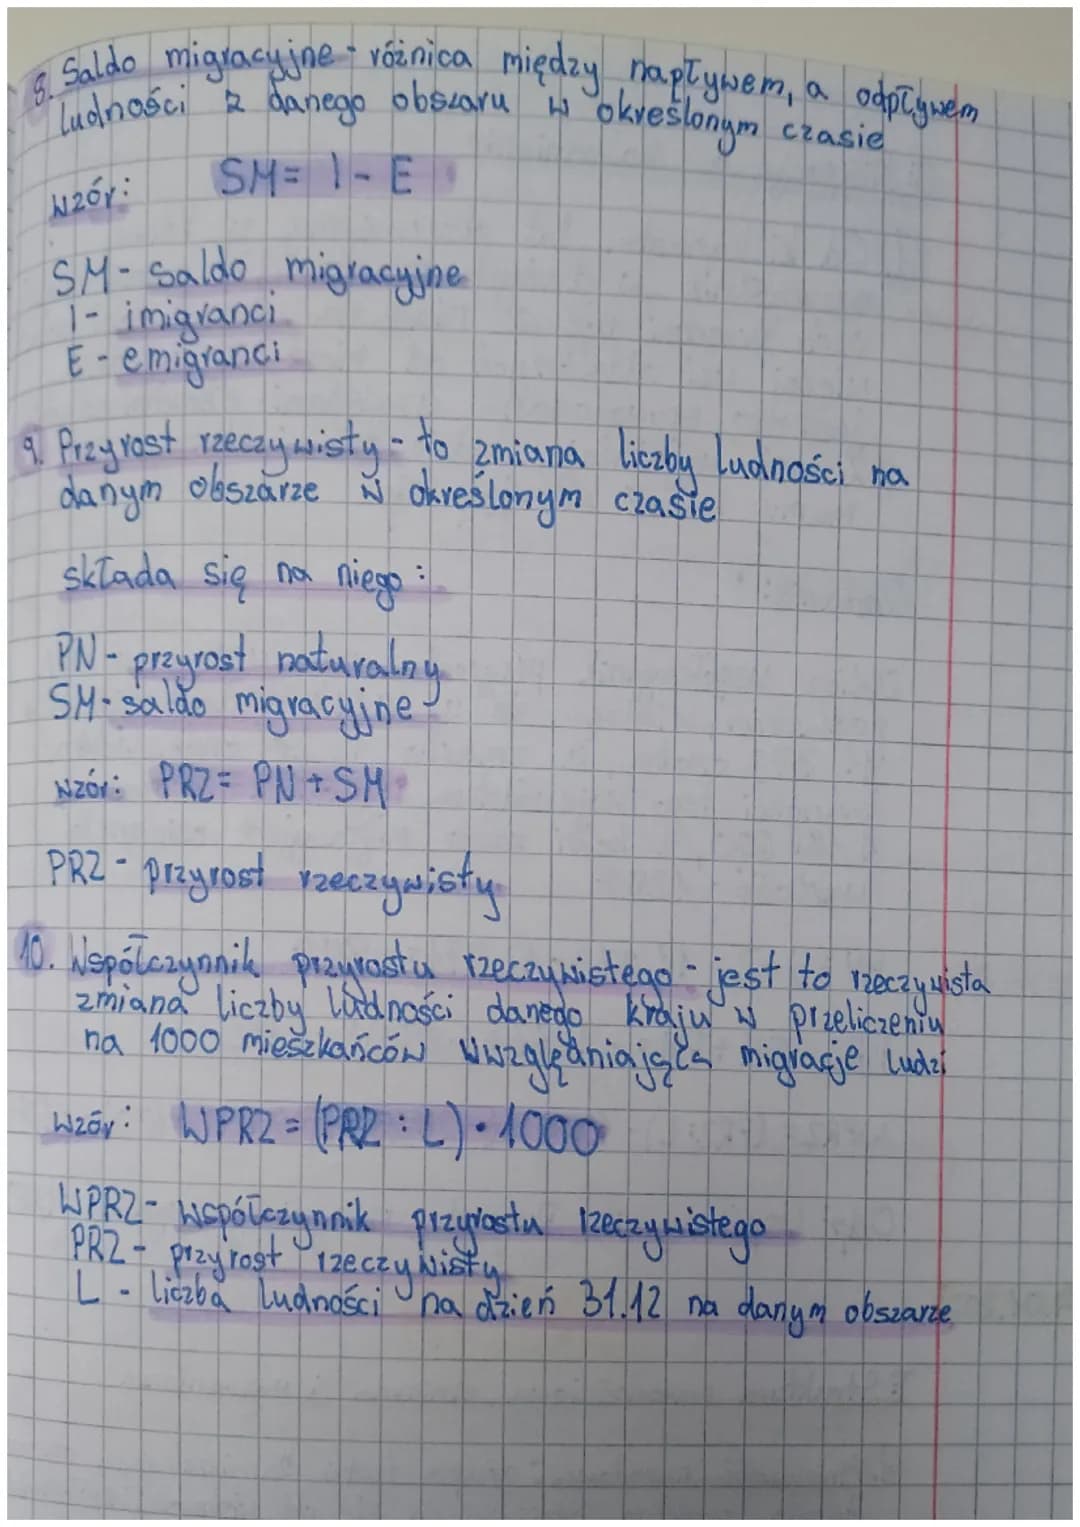 8. Saldo migracyjne - różnica między napływem, a odpływem
ludności z danego obszaru w określonym czasie
wzór: SM = I - E
SM - saldo migracyjne
I - imigranci
E - emigranci
9. Przyrost rzeczywisty - to zmiana liczby ludności na
danym obszarze w określonym czasie
składa się na niego:
PN - przyrost naturalny
SM - saldo migracyjne
wzór: PRZ = PN + SM
PRZ - przyrost rzeczywisty
10. Współczynnik przyrostu rzeczywistego - jest to rzeczywista
zmiana liczby ludności danego kraju w przeliczeniu
na 1000 mieszkańców uwzględniająca migracje ludzi
wzór: WPRZ = (PRZ : L) · 1000
WPRZ - współczynnik przyrostu rzeczywistego
PRZ - przyrost rzeczywisty
L - liczba ludności na dzień 31.12 na danym obszarze